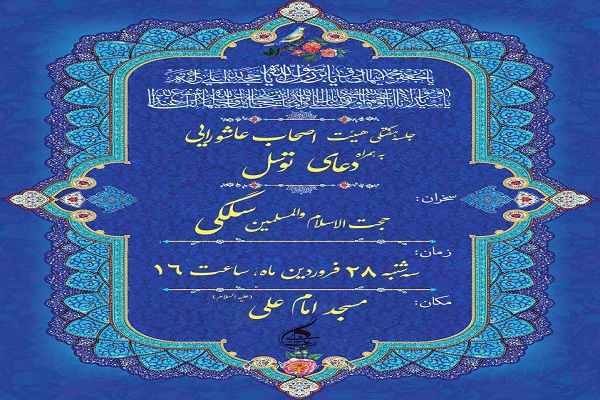 جلسه هفتگی هیئت اصحاب عاشورایی
به همراه دعای توسل
سخنران:
حجت الاسلام والمسلمین سلگی
زمان:
سه شنبه ۲۸ فروردین ماه، ساعت ۱۶
مکان:
مسجد امام علی (علیه السلام)